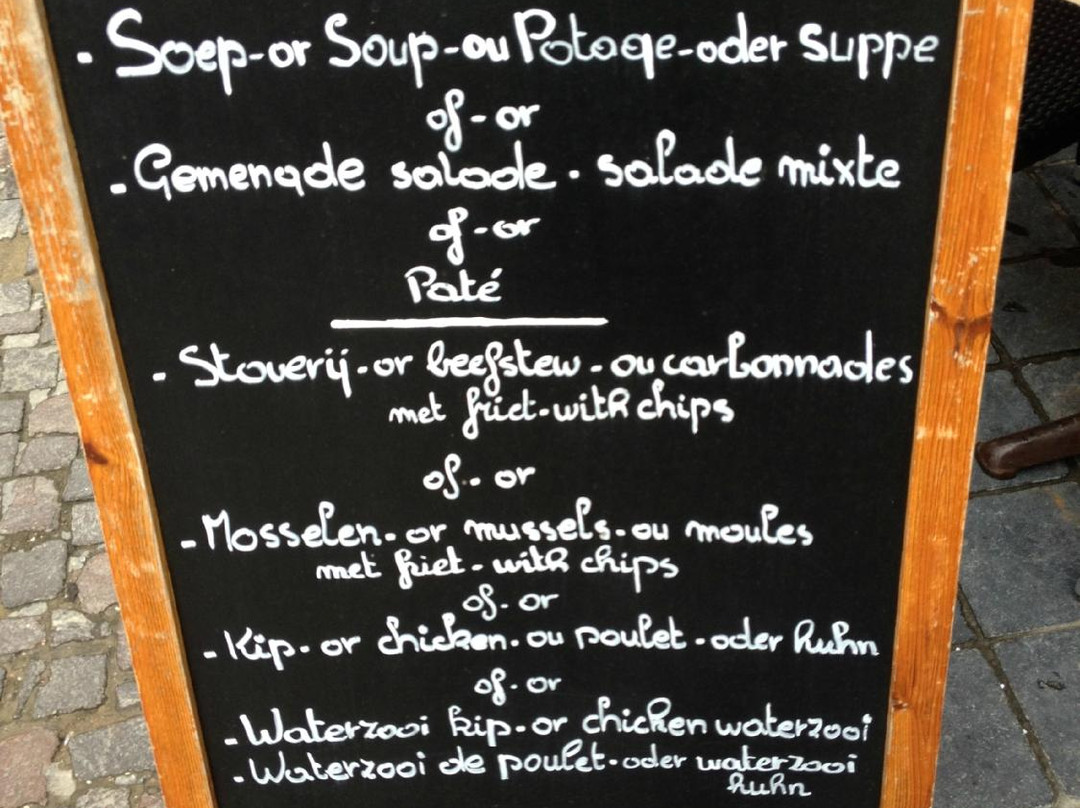 - Soep - or Soup - ou Potage - oder Suppe
of - or
- Gemengde salade - salade mixte
of - or
Paté
- Stoverij - or beefstew - ou carbonnades
met friet - with chips
of - or
- Mosselen - or mussels - ou moules
met friet - with chips
of - or
- Kip - or chicken - ou poulet - oder huhn
of - or
- Waterzooi kip - or chicken waterzooi
- Waterzooi de poulet - oder waterzooi
huhn